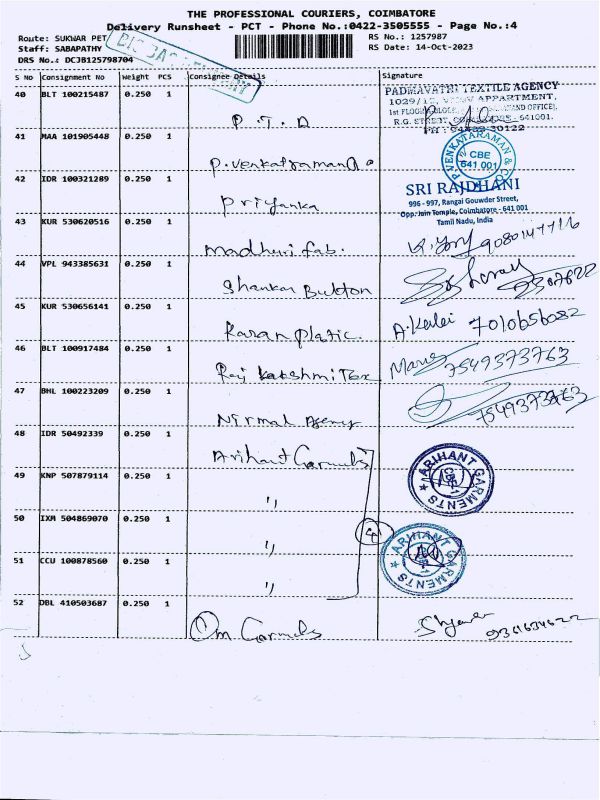 THE PROFESSIONAL COURIERS, COIMBATORE
Delivery Runsheet - PCT - Phone No.:0422-3505555 - Page No.:4
Route: SUKWAR PET
RS No.: 1257987
Staff: SABAPATHY
RS Date: 14-Oct-2023
DRS No.: DCJB125798704
S No Consignment No Weight PCS Consignee Details Signature
40 BLT 100215487 0.250 1 P.T.A
PADMAVATHI TEXTILE AGENCY
APPARTMENT,
R.G. STREET, - 641001.
41 MAA 101905448 0.250 1 P.venkatraman
P.VENKATARAMAN & CO
CBE
641 001
42 IDR 100321289 0.250 1 Priyanka
SRI RAJDHANI
996 - 997, Rangai Gouwder Street,
Opp. Jain Temple, Coimbatore - 641 001
Tamil Nadu, India
43 KUR 530620516 0.250 1 madhuri fab.
44 VPL 943385631 0.250 1 Shankar Button
45 KUR 530656141 0.250 1 Karan platic. 7010656082
46 BLT 100917484 0.250 1 Raj Lakshmi Tex 7549373763
47 BHL 100223209 0.250 1 Nirmal Agency 7549373763
48 IDR 50492339 0.250 1 Arihant Garments
49 KNP 507879114 0.250 1 ''
ARIHANT GARMENTS
50 IXM 504869070 0.250 1 ''
4
51 CCU 100878560 0.250 1 ''
ARIHANT GARMENTS
52 DBL 410503687 0.250 1 Om Garments